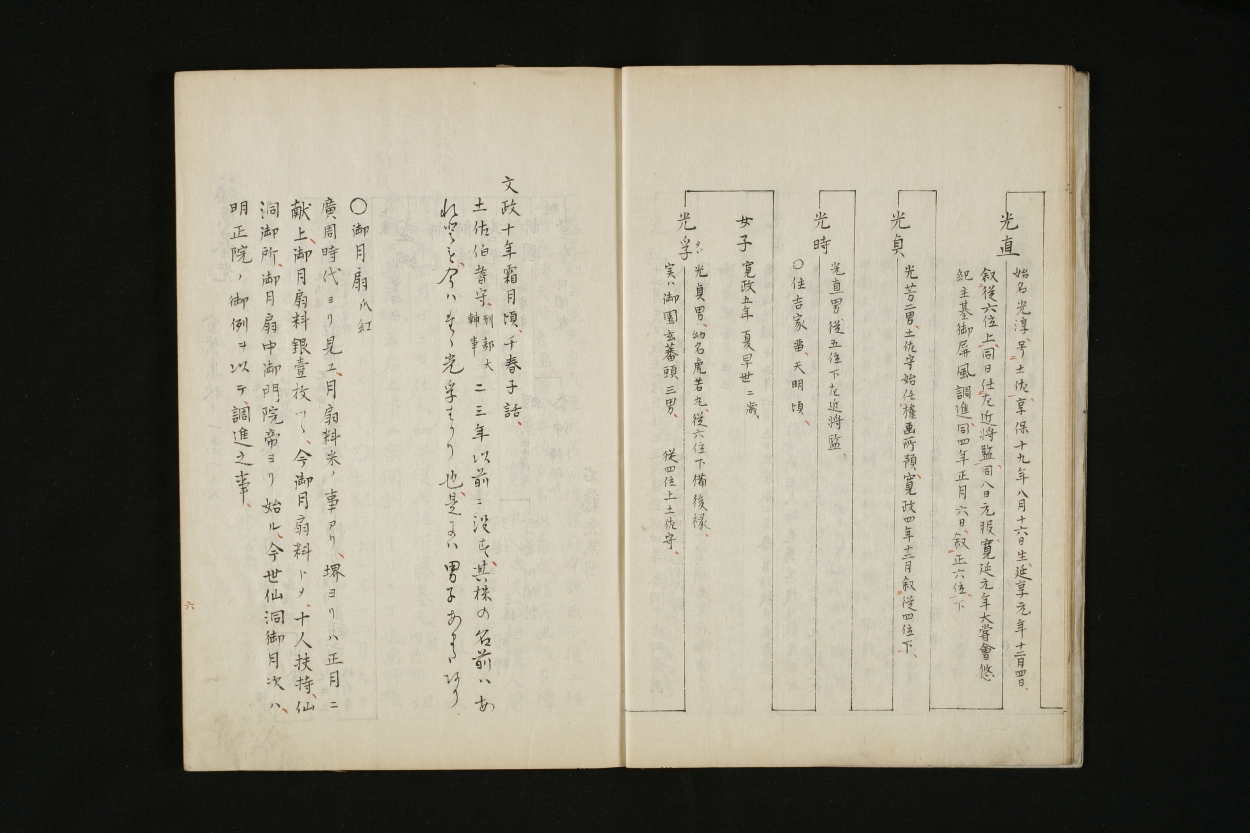 光直
始名光淳、号土佐、享保十九年八月十六日生、延享元年十二月四日、
叙従六位上、同日任左近将監、同八日元服、寛延元年大嘗會悠
紀主基御屏風調進、同四年正月六日、叙正六位下
光貞
光芳二男、土佐守始任権画所預、寛政四年十二月叙従四位下、
光時
光直男従五位下左近将監、
〇住吉家畧天明頃、
女子
寛政五年夏早世二歳
光孚
光貞男、幼名虎若丸、従六位下備後掾、
実ハ御園玄蕃頭三男、 従四位上土佐守、
文政十年霜月頃、千春子話、
土佐伯耆守、別部大輔事二三年以前ニ没す、其株の名前ハあ
れとも、今ハ光孚はかり也、是にハ男子あまたあり
〇御月扇爪紅
廣周時代ヨリ見エ、月扇料米ノ事アリ、堺ヨリハ正月ニ
献上、御月扇料銀壹枚ツヽ、今御月扇料トメ、十人扶持、仙
洞御所、御月扇中御門院帝ヨリ始ル、今世仙洞御月次ハ、
明正院ノ御例ヲ以テ調進之事、
六